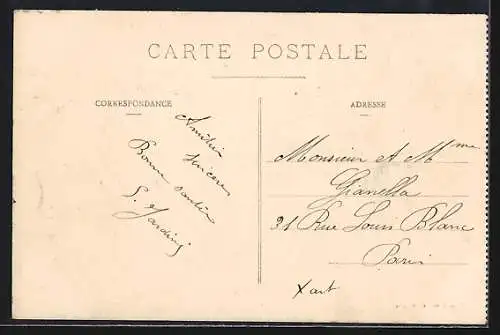 CARTE POSTALE
CORRESPONDANCE
Amitiés
sincères
Bonne santé
S. Jardin
ADRESSE
Monsieur et Mme
Gianella
31 Rue Louis Blanc
Paris